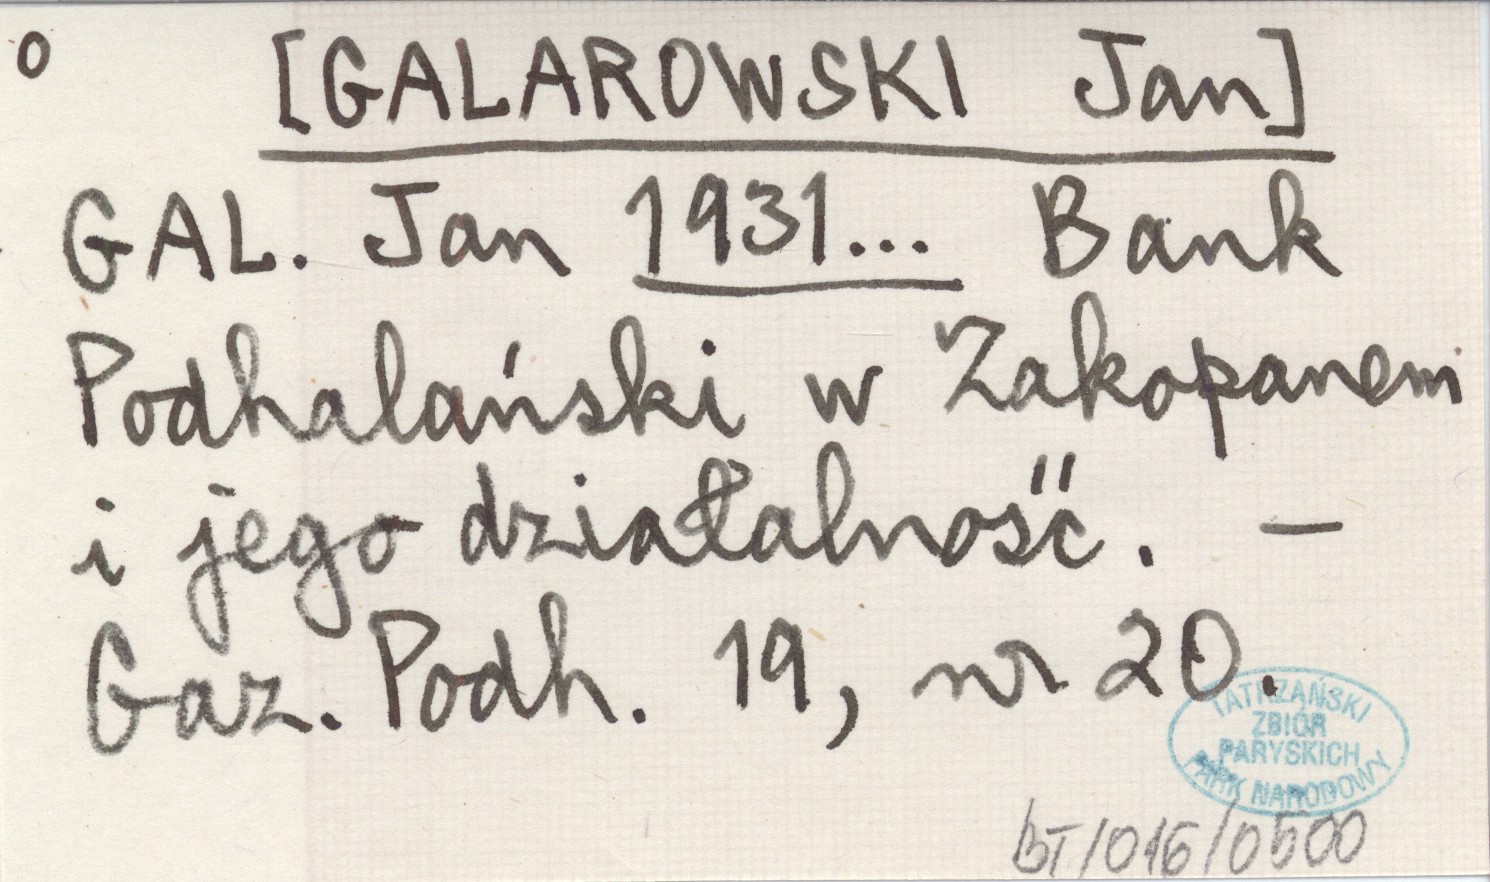 o [GALAROWSKI Jan]
GAL. Jan 1931... Bank
Podhalański w Zakopanem
i jego działalność. —
Gaz. Podh. 19, nr 20.
TATRZAŃSKI
ZBIÓR
PARYSKICH
PARK NARODOWY
BT/016/0500